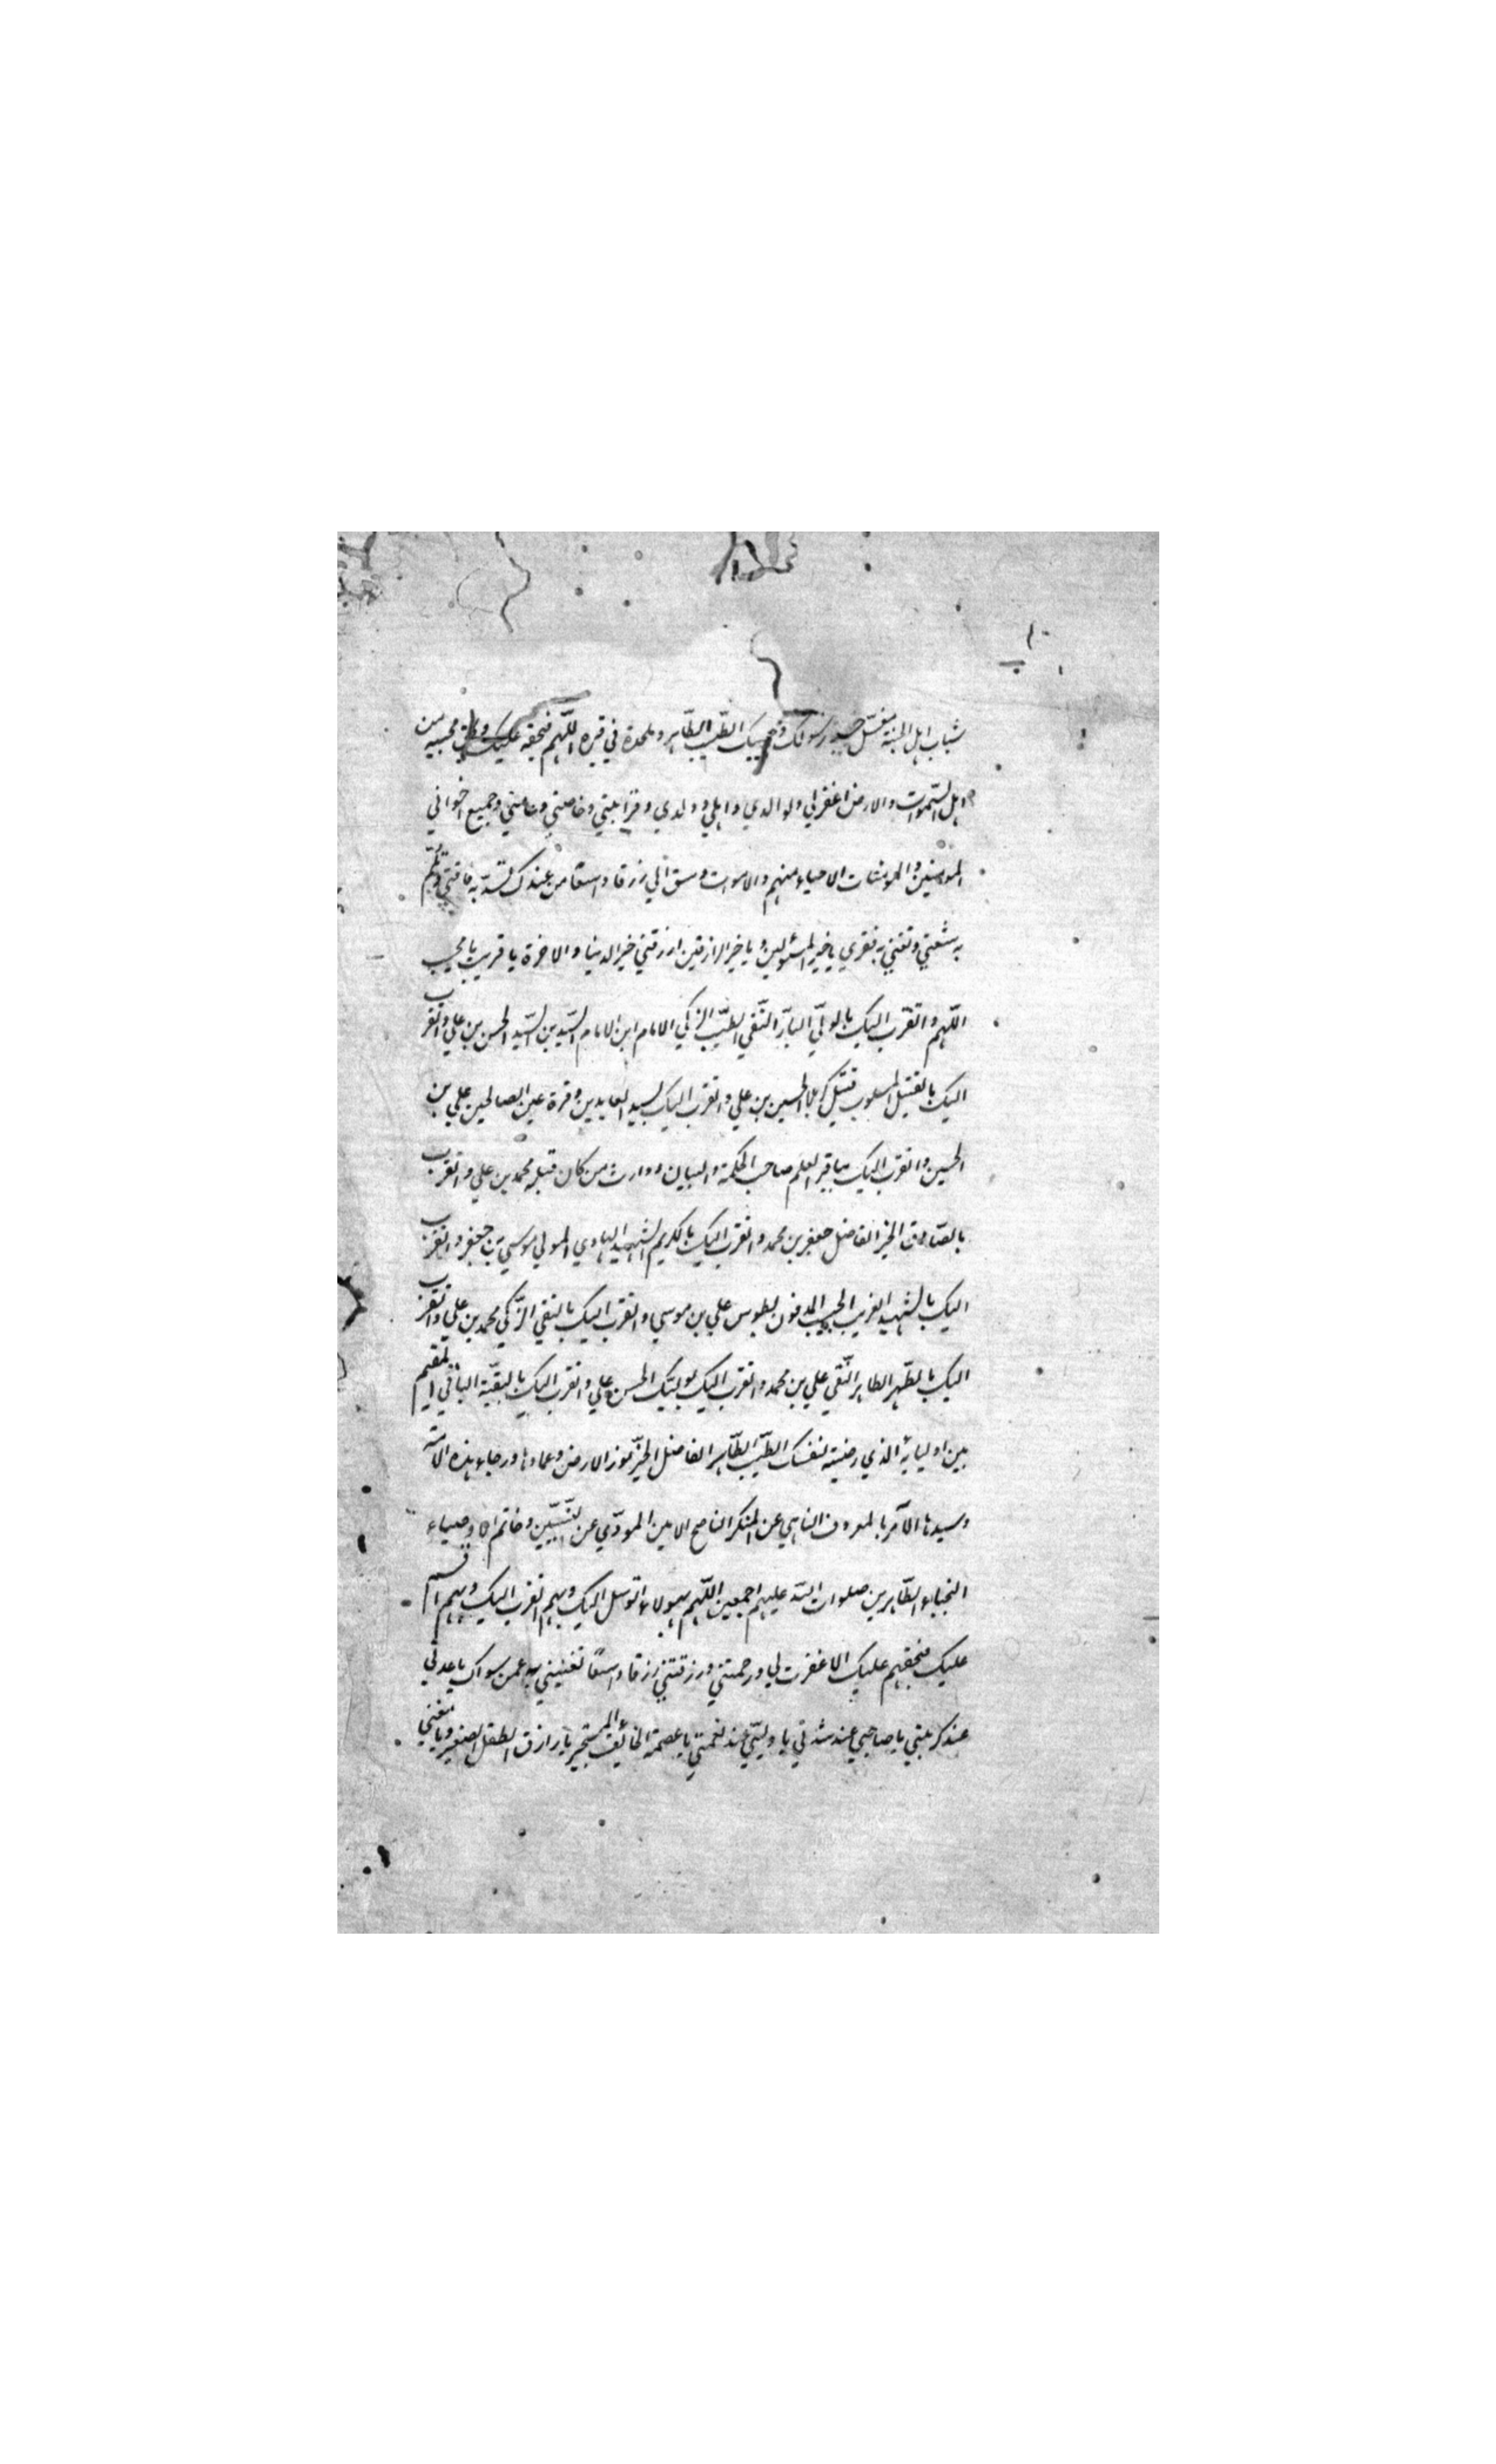 شباب اهل الجنة مغسّل جسد رسولك وحبيبك الطّيّب الطّاهر وملحده في قبره اللّهم فبحقه عليك وبحق محبيه من
اهل السّموات والارض اغفر لي ولوالدي واهلي وولدي وقرابتي وخاصتي وعامتي وجميع اخواني
المومنين والمومنات الاحياء منهم والاموات وسق الي رزقا واسعًا من عندك تسدّ به فاقتي وتلمّ
به شعثي وتغني به فقري يا خير المسئولين ويا خير الرازقين ارزقني خير الدنيا والاخرة يا قريب يا مجيب
اللّهم واتقرّب اليك بالوليّ البارّ التّقي الطّيّب الزكي الامام ابن الامام السّيّد بن السّيّد الحسن بن علي واتقرب
اليك بالقتيل المسلوب قتيل كربلا الحسين بن علي واتقرب اليك بسيد العابدين وقرة عين الصالحين علي بن
الحسين واتقرب اليك بباقر العلم صاحب الحكمة والبيان ووارث من كان قبله محمد بن علي واتقرب
بالصّادق الخير الفاضل جعفر بن محمد واتقرب اليك بالكريم الشهيد الهادي المولي موسي بن جعفر واتقرب
اليك بالشهيد الغريب الحبيب المدفون بطوس علي بن موسي واتقرب اليك بالتقي الزّكي محمد بن علي واتقرب
اليك بالطّهر الطاهر النّقي علي بن محمد واتقرب اليك بوليّك الحسن بن علي واتقرب اليك بالبقيّة الباقي المقيم
بين اوليائه الذي رضيته لنفسك الطّيّب الطّاهر الفاضل الخيّر نور الارض وعمادها ورجاء هذه الامّة
وسيدها الآمر بالمعروف الناهي عن المنكر الناصح الامين المودّي عن النّبيّين وخاتم الاوصياء
النجباء الطّاهرين صلوات اللّه عليهم اجمعين اللّهم بهولاء اتوسل اليك وبهم اتقرب اليك وبهم اقسم
عليك فبحقهم عليك الا غفرت لي ورحمتني ورزقتني رزقا واسعًا تغنيني به عمن سواك يا عدتي
عند كربتي يا صاحبي عند شدتي يا وليّي عند نعمتي يا عصمة الخائف المستجير يا رازق الطفل الصغير ويا مغني